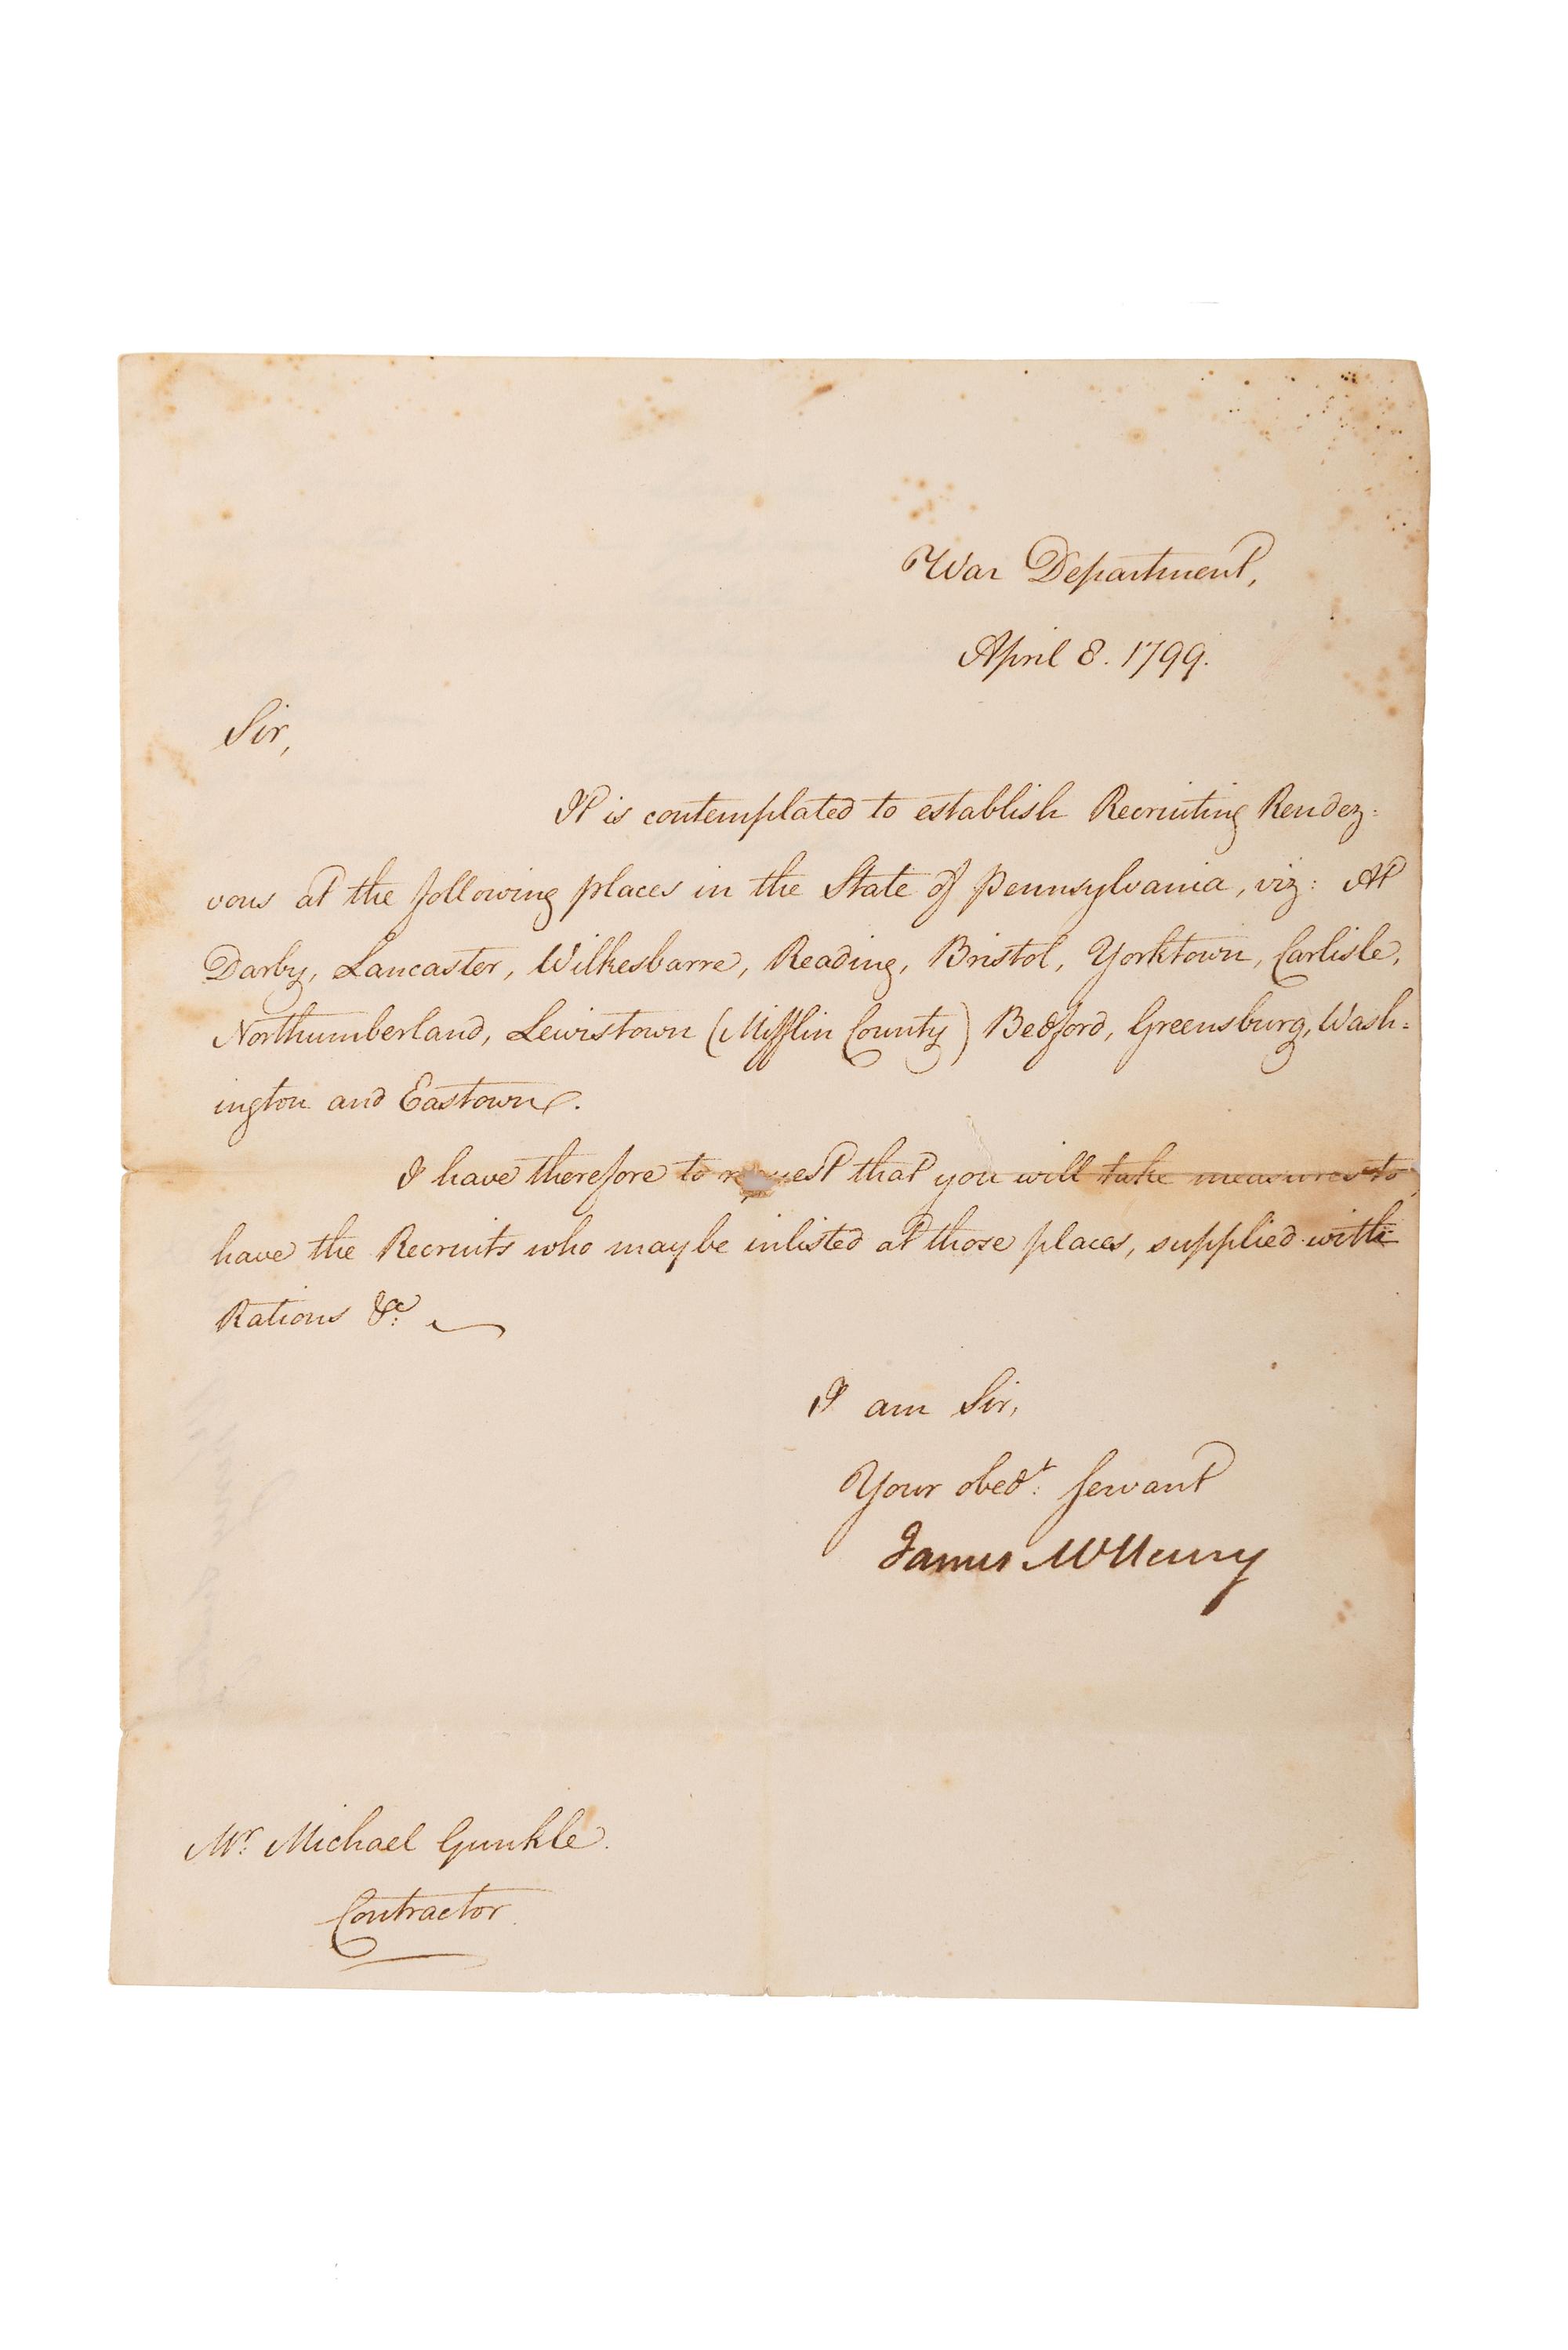 War Department,
April 8. 1799.
Sir,
It is contemplated to establish Recruiting Rendez:
vous at the following places in the State of Pennsylvania, viz: At
Darby, Lancaster, Wilkesbarre, Reading, Bristol, Yorktown, Carlisle,
Northumberland, Lewistown (Mifflin County) Bedford, Greensburg, Wash=
ington and Eastown.
I have therefore to request that you will take measures to
have the Recruits who may be inlisted at those places, supplied with
Rations &c.
I am Sir,
Your obedt. Servant
James McHenry
Mr. Michael Gunkle.
Contractor